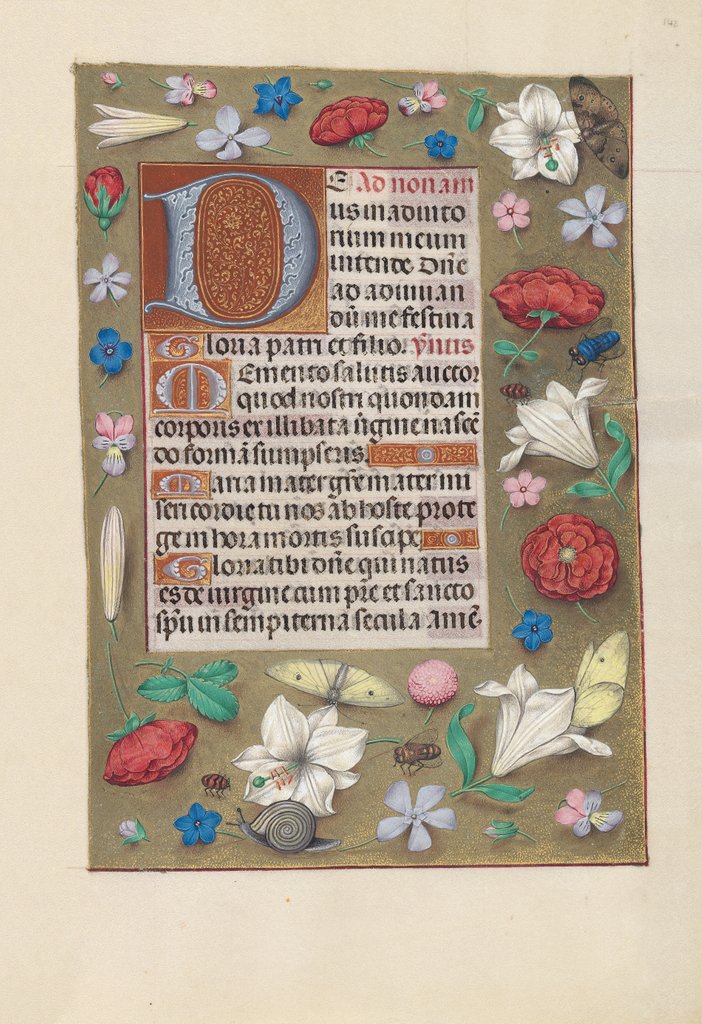 142
DE Ad nonam
us in adiuto
rium meum
intende Dñe
ad adiuuan
dũ me festina
Gloria patri et filio. ỹnus
Memento salutis auctor
quod nostri quondam
corporis ex illibata ũgine nascẽ
do formã sumpseris
Maria mater grẽ mater mi
sericordie tu nos ab hoste prote
ge in hora mortis suscipe
Gloria tibi dñe qui natus
es de uirgine cum prẽ et sancto
spũ in sempiterna secula amẽ